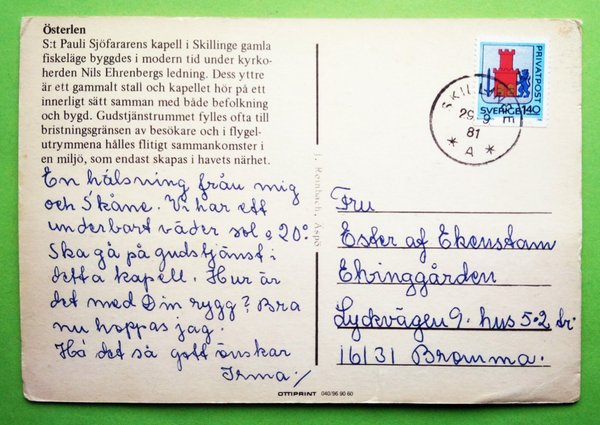 Österlen
S:t Pauli Sjöfararens kapell i Skillinge gamla
fiskeläge byggdes i modern tid under kyrko-
herden Nils Ehrenbergs ledning. Dess yttre
är ett gammalt stall och kapellet hör på ett
innerligt sätt samman med både befolkning
och bygd. Gudstjänstrummet fylles ofta till
bristningsgränsen av besökare och i flygel-
utrymmena hålles flitigt sammankomster i
en miljö, som endast skapas i havets närhet.
En hälsning från mig
och Skåne. Vi har ett
underbart väder sol o 20°.
Ska gå på gudstjänst i
detta kapell. Hur är
det med Din rygg? Bra
nu hoppas jag.
Ha det så gott önskar
Irma./
J. Reinbach, Äspö
PRIVATPOST
SVERIGE 140
SKILLINGE
29. 9
81
* A *
Fru
Ester af Ekenstam
Elvinggården
Lyckvägen 9. hus 5. 2 tr.
16131 Bromma.
OTTIPRINT 040/96 90 60